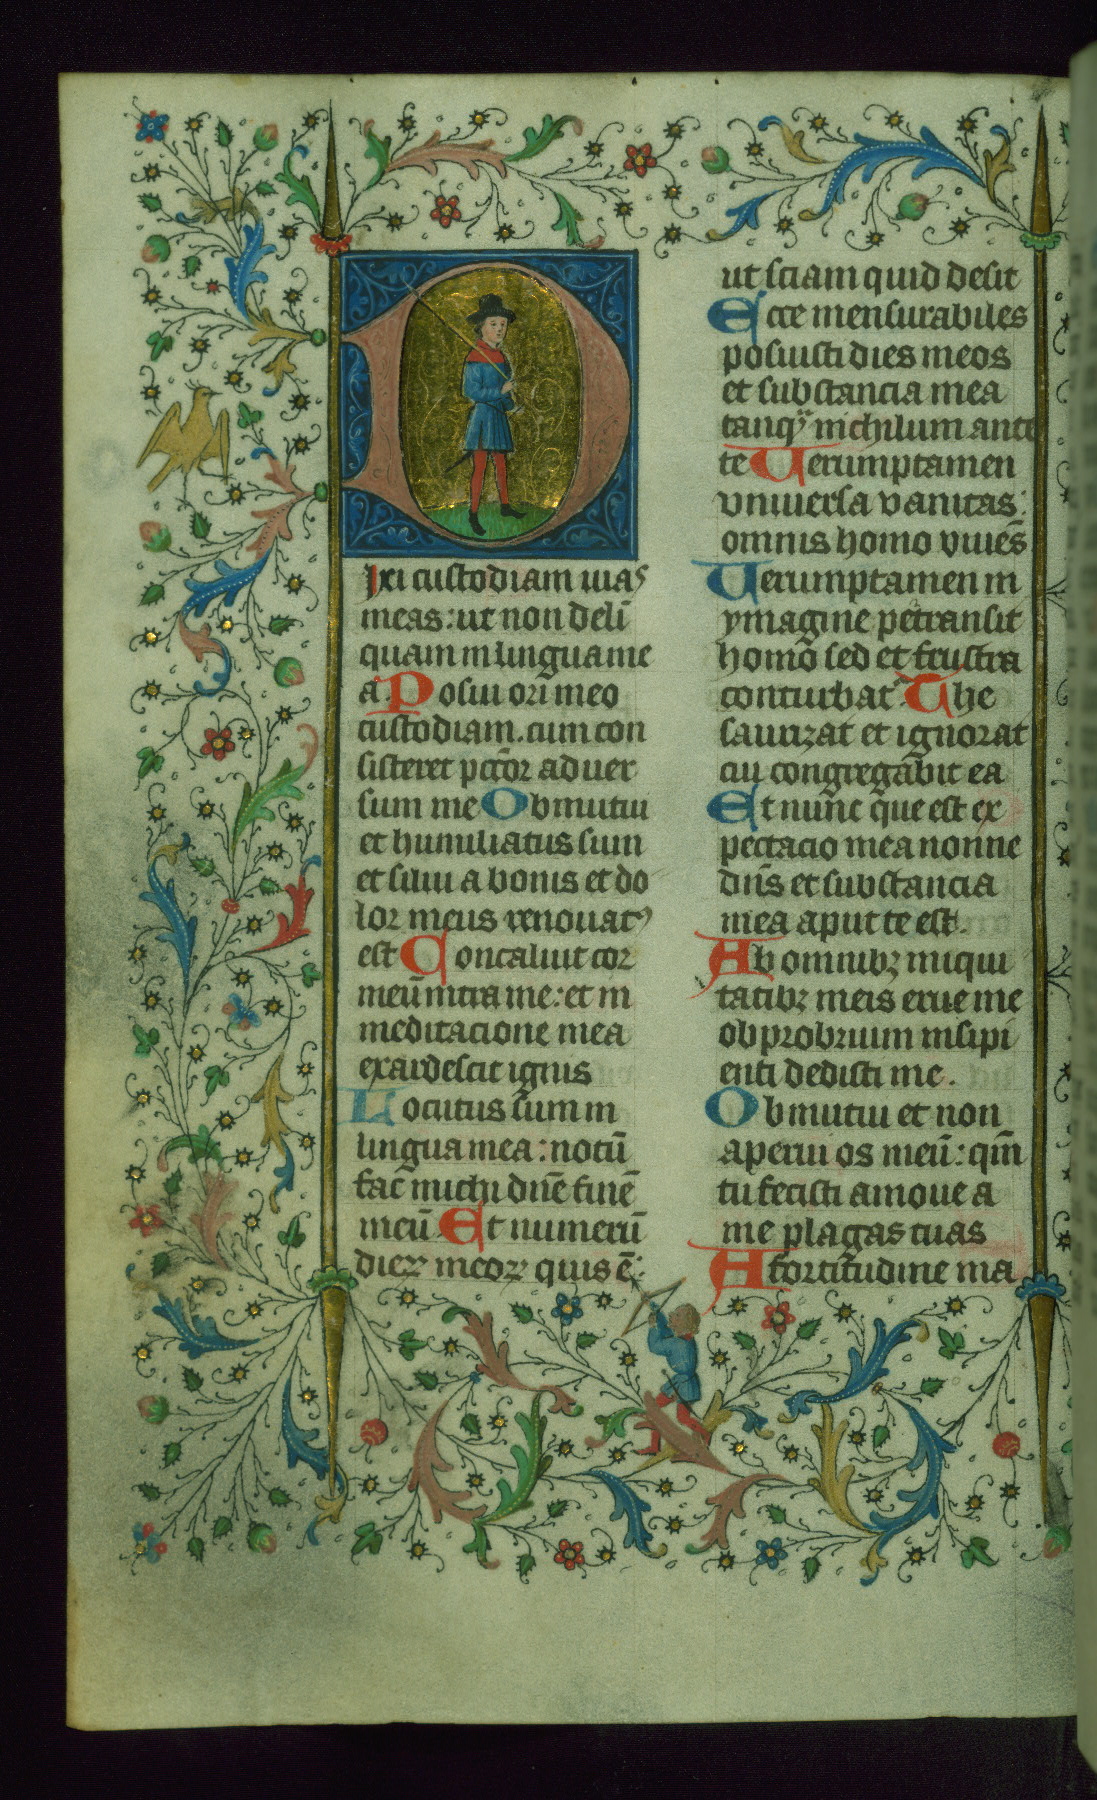 Dixi custodiam uias
meas: ut non deli
quam in lingua me
a. Posui ori meo
custodiam. cum con
sisteret pctor aduer
sum me Obmutui
et humiliatus sum
et silui a bonis et do
lor meus renouatꝰ
est Concaluit cor
meū intra me: et in
meditacione mea
exardescit ignis
Locutus sum in
lingua mea: notū
fac̄ michi dn̄e finē
meū Et numerū
dieꝝ meoꝝ quis ē:
ut sciam quid desit
Ecce mensurabiles
posuisti dies meos
et substancia mea
tanqͣ nichilum ante
te Uerumptamen
vniuersa vanitas:
omnis homo viuēs
Uerumptamen in
ymagine pertransit
homo sed et frustra
conturbat᷑ The
saurizat et ignorat
cui congregabit ea
Et nunc que est ex
pectacio mea nonne
dn̄s et substancia
mea aput te est.
Ab omnibꝫ iniqui
tatibꝫ meis erue me
obprobrium insipi
enti dedisti me.
Obmutui et non
aperui os meū: qm̄
tu fecisti amoue a
me plagas tuas
A fortitudine ma